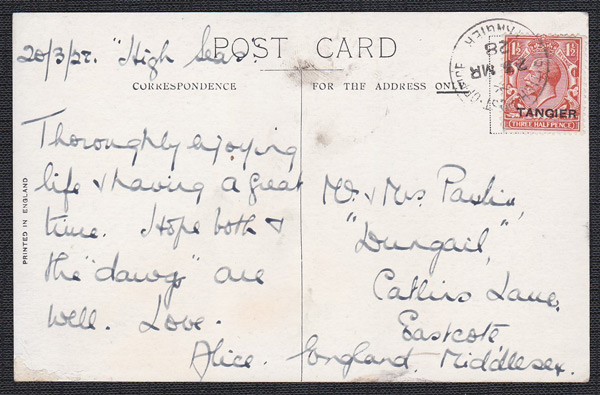 POST CARD
20/3/28. "High Seas".
CORRESPONDENCE
FOR THE ADDRESS ONLY
Thoroughly enjoying
life & having a great
time. Hope both &
the "dawgs" are
well. Love.
Alice.
Mr & Mrs Paulin,
"Dungail",
Catlins Lane,
Eastcote,
England. Middlesex.
PRINTED IN ENGLAND
1½ 1½
TANGIER
THREE HALFPENCE
TANGIER
MR
28